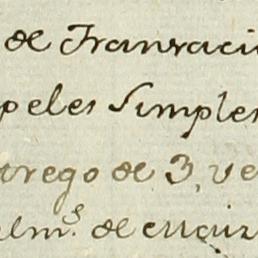 de Transaci
peles Simples
trego de 3, ve
alm.s de